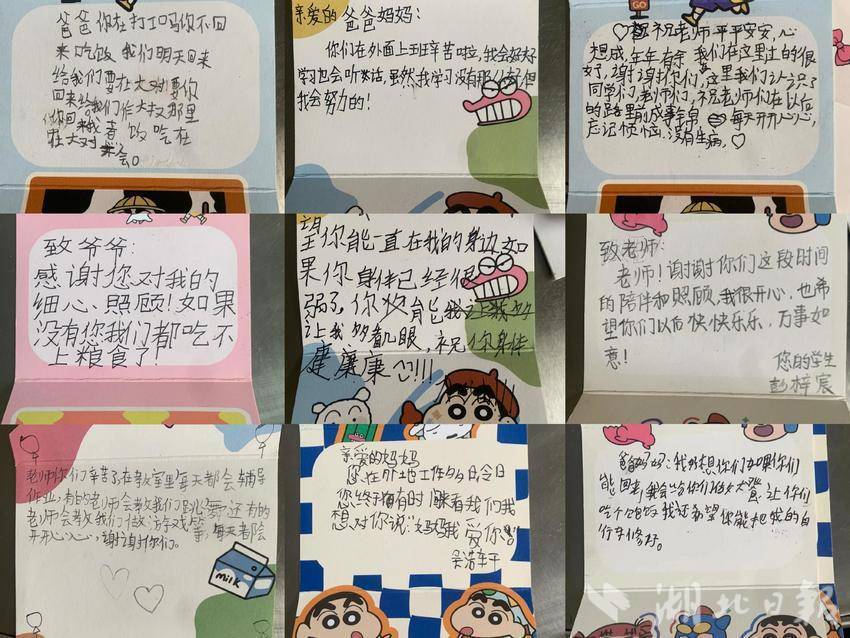 爸爸你在打工吗你不回
来吃饭 我们明天回来
给我们要在大对要你
回来给我们作大叔那里
饭吃在
GO
亲爱的爸爸妈妈：
你们在外面上班辛苦啦，我会好好
学习也会听的话，虽然我学习没有那么好但
我会努力的！
♡祝老师平平安安，心
想成，年年有余，我们在这里过的很
好，谢谢你们，这里我们认识了
同学们，老师们，祝老师们在以后
的路里前成事锦，每天开开心心，
忘记烦恼，没有生病，♡
致爷爷：
感谢您对我的
细心、照顾！如果
没有您我们都吃不
上粮食了！
望你能一直在我的身边，如
果你身体已经很
弱了，你必能
让我够看几眼，祝你身体
建康！！！
致老师：
老师！谢谢你们这段时间
的陪伴和照顾，我很开心，也希
望你们以后快快乐乐，万事如
意！
您的学生
彭梓宸
老师你们辛苦了，在教室里每天都会辅导
作业，有的老师会教我们跳舞，还有的
老师会教我们做游戏等，每天都会
开开心心，谢谢你们。
milk
亲爱的妈妈
您在外地工作多日，今日
您终于有时间来看我们，我
想对你说：“妈妈我爱你！”
爸爸妈妈：我好想你们，如果你们
能回来，我会给你们做大餐，让你们
吃个饱饱，我还希望你能把我的自
行车修好。
湖北日报